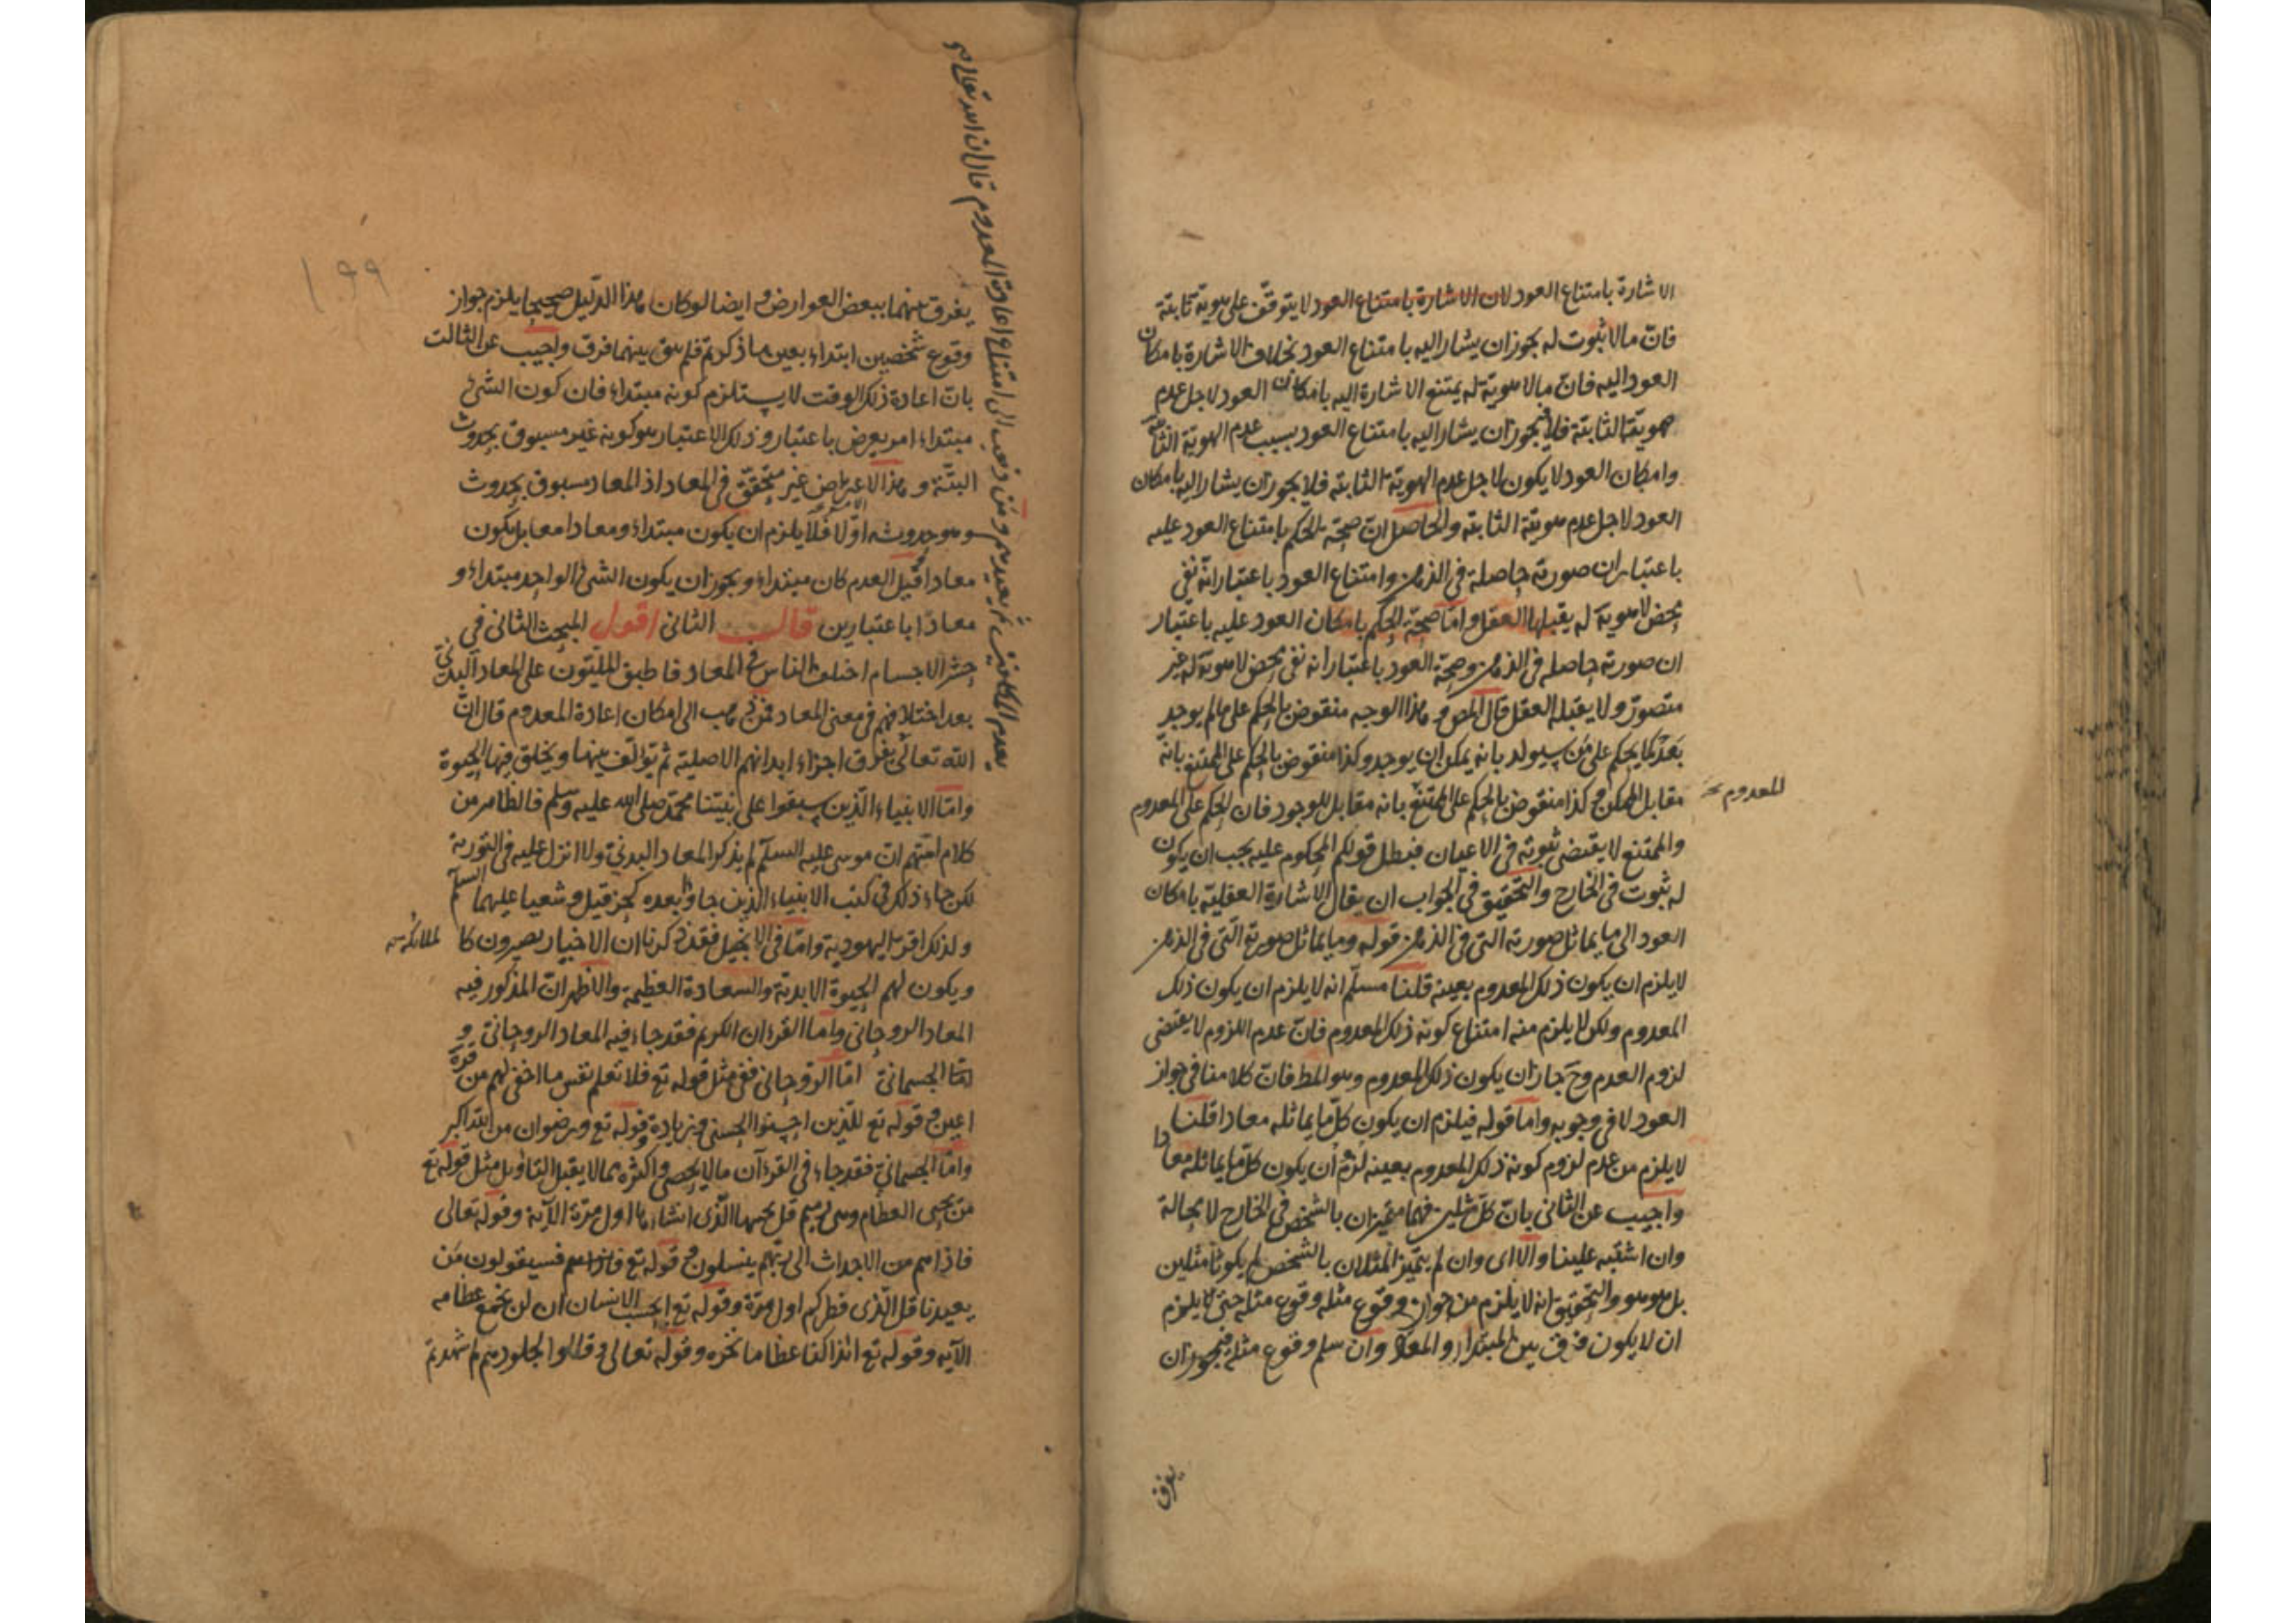 الاشارة بامتناع العود لان الاشارة بامتناع العود لا يتوقف على هوية ثابتة
فان مالا ثبوت له يجوز ان يشار اليه بامتناع العود بخلاف الاشارة بامكان
العود اليه فان مالا هوية له يمتنع الاشارة اليه بامكان العود لاجل عدم
هويته الثابتة فلا يجوز ان يشار اليه بامتناع العود بسبب عدم الهوية الثابتة
وامكان العود لا يكون لاجل عدم الهوية الثابته فلا يجوز ان يشار اليه بامكان
العود لاجل عدم هويته الثابته والحاصل ان صحة الحكم بامتناع العود عليه
باعتبار ان صورته حاصلة في الذهن وامتناع العود باعتبار انه نفي
محض لا هوية له يقبلها العقل واما صحة الحكم بامكان العود عليه باعتبار
ان صورته حاصله في الذهن وصحة العود باعتبار انه نفي محض لا هوية له غير
متصور ولا يقبله العقل قال المص وهذا الوجه منقوض بالحكم على مالم يوجد
بعد كما يحكم على من سيولد بانه يمكن ان يوجد وكذا منقوض بالحكم على الممتنع بانه
مقابل الممكن وكذا منقوض بالحكم على الممتنع بانه مقابل للوجود فان الحكم على المعدوم
للمعدوم
والممتنع لا يقتضي ثبوته في الاعيان فبطل قولكم المحكوم عليه يجب ان يكون
له ثبوت في الخارج والتحقيق في الجواب ان يقال الاشارة العقلية بامكان
العود الى ما يماثل صورته التي في الذهن قوله وما يماثل صورته التي في الذهن
لا يلزم ان يكون ذلك المعدوم بعينه قلنا مسلم انه لا يلزم ان يكون ذلك
المعدوم ولكن لا يلزم منه امتناع كونه ذلك المعدوم فان عدم اللزوم لا يقتضى
لزوم العدم وح جاز ان يكون ذلك المعدوم وهو المط فان كلامنا في جواز
العود لا في وجوبه واما قوله فيلزم ان يكون كل ما يماثله معادا قلنا
لا يلزم من عدم لزوم كونه ذلك المعدوم بعينه لزوم ان يكون كل ما يماثله معادا
واجيب عن الثاني بان كل مثلين فهما متميزان بالشخص في الخارج لا محالة
وان اشتبه علينا والا اى وان لم يتميز المثلان بالشخص لم يكونا مثلين
بل هو هو والتحقيق انه لا يلزم من جواز وقوع مثله وقوع مثله حتى يلزم
ان لا يكون فرق بين المبتدا والمعاد وان سلم وقوع مثله فيجوز ان
يفرق
١٩٩
يفرق بينهما ببعض العوارض وايضا لو كان هذا الدليل صحيحا يلزم جواز
وقوع شخصين ابتداء بعين ما ذكرتم فلم يبق بينهما فرق واجيب عن الثالث
بان اعادة ذلك الوقت لا يستلزم كونه مبتداء فان كون الشئ
مبتداء امر يعرض باعتبار وذلك الاعتبار هو كونه غير مسبوق بحدوث
البتة و هذا الاعتراض غير متحقق في المعاد اذ المعاد مسبوق بحدوث
وهو حدوثه اولا فلا يلزم ان يكون مبتداء ومعادا معا بل يكون
معادا قبل العدم كان مبتداء ويجوز ان يكون الشئ الواحد مبتداء و
معادا باعتبارين قال الثاني اقول المبحث الثاني في
حشر الاجسام اختلف الناس في المعاد فاطبق المليون على المعاد البدني
بعد اختلافهم في معنى المعاد فمن ذهب الى امكان اعادة المعدوم قال ان
الله تعالى يفرق اجزاء ابدانهم الاصلية ثم يؤلف بينها ويخلق فيها الحيوة
يعدم المكلفين ثم يعيدهم ومن ذهب الى امتناع اعادة المعدوم قال ان الله تعالى
واما الانبياء الذين سبقوا على نبينا محمد صلى الله عليه وسلم فالظاهر من
كلام امتهم ان موسى عليه السلام لم يذكر المعاد البدني ولا انزل عليه في التورية
لكن جاء ذلك في كتب الانبياء الذين جاؤا بعده كحزقيل وشعيا عليهما السلام
ولذلك اقر اليهود به واما في الانجيل فقد ذكرنا ان الاخيار يصيرون كا
لملائكة
ويكون لهم الحيوة الابدية والسعادة العظيمة والاظهر ان المذكور فيه
المعاد الروحاني واما القرءان الكريم فقد جاء فيه المعاد الروحاني و
الجسماني اما الروحاني ففي مثل قوله تع فلا تعلم نفس ما اخفى لهم من قرة
اعين وقوله تع للذين احسنوا الحسنى وزيادة وقوله تع ورضوان من الله اكبر
واما الجسماني فقد جاء في القرءآن مالا يحصى واكثره مما لا يقبل التاويل مثل قوله تع
من يحيى العظام وهى رميم قل يحييها الذى انشاءها اول مرة الآية وقوله تعالى
فاذا هم من الاجداث الى ربهم ينسلون وقوله تع فسيقولون من
يعيدنا قل الذى فطركم اول مرة وقوله تع ايحسب الانسان ان لن نجمع عظامه
الآيه وقوله تع ائذا كنا عظاما نخره وقوله تعالى وقالوا لجلودهم لم شهدتم